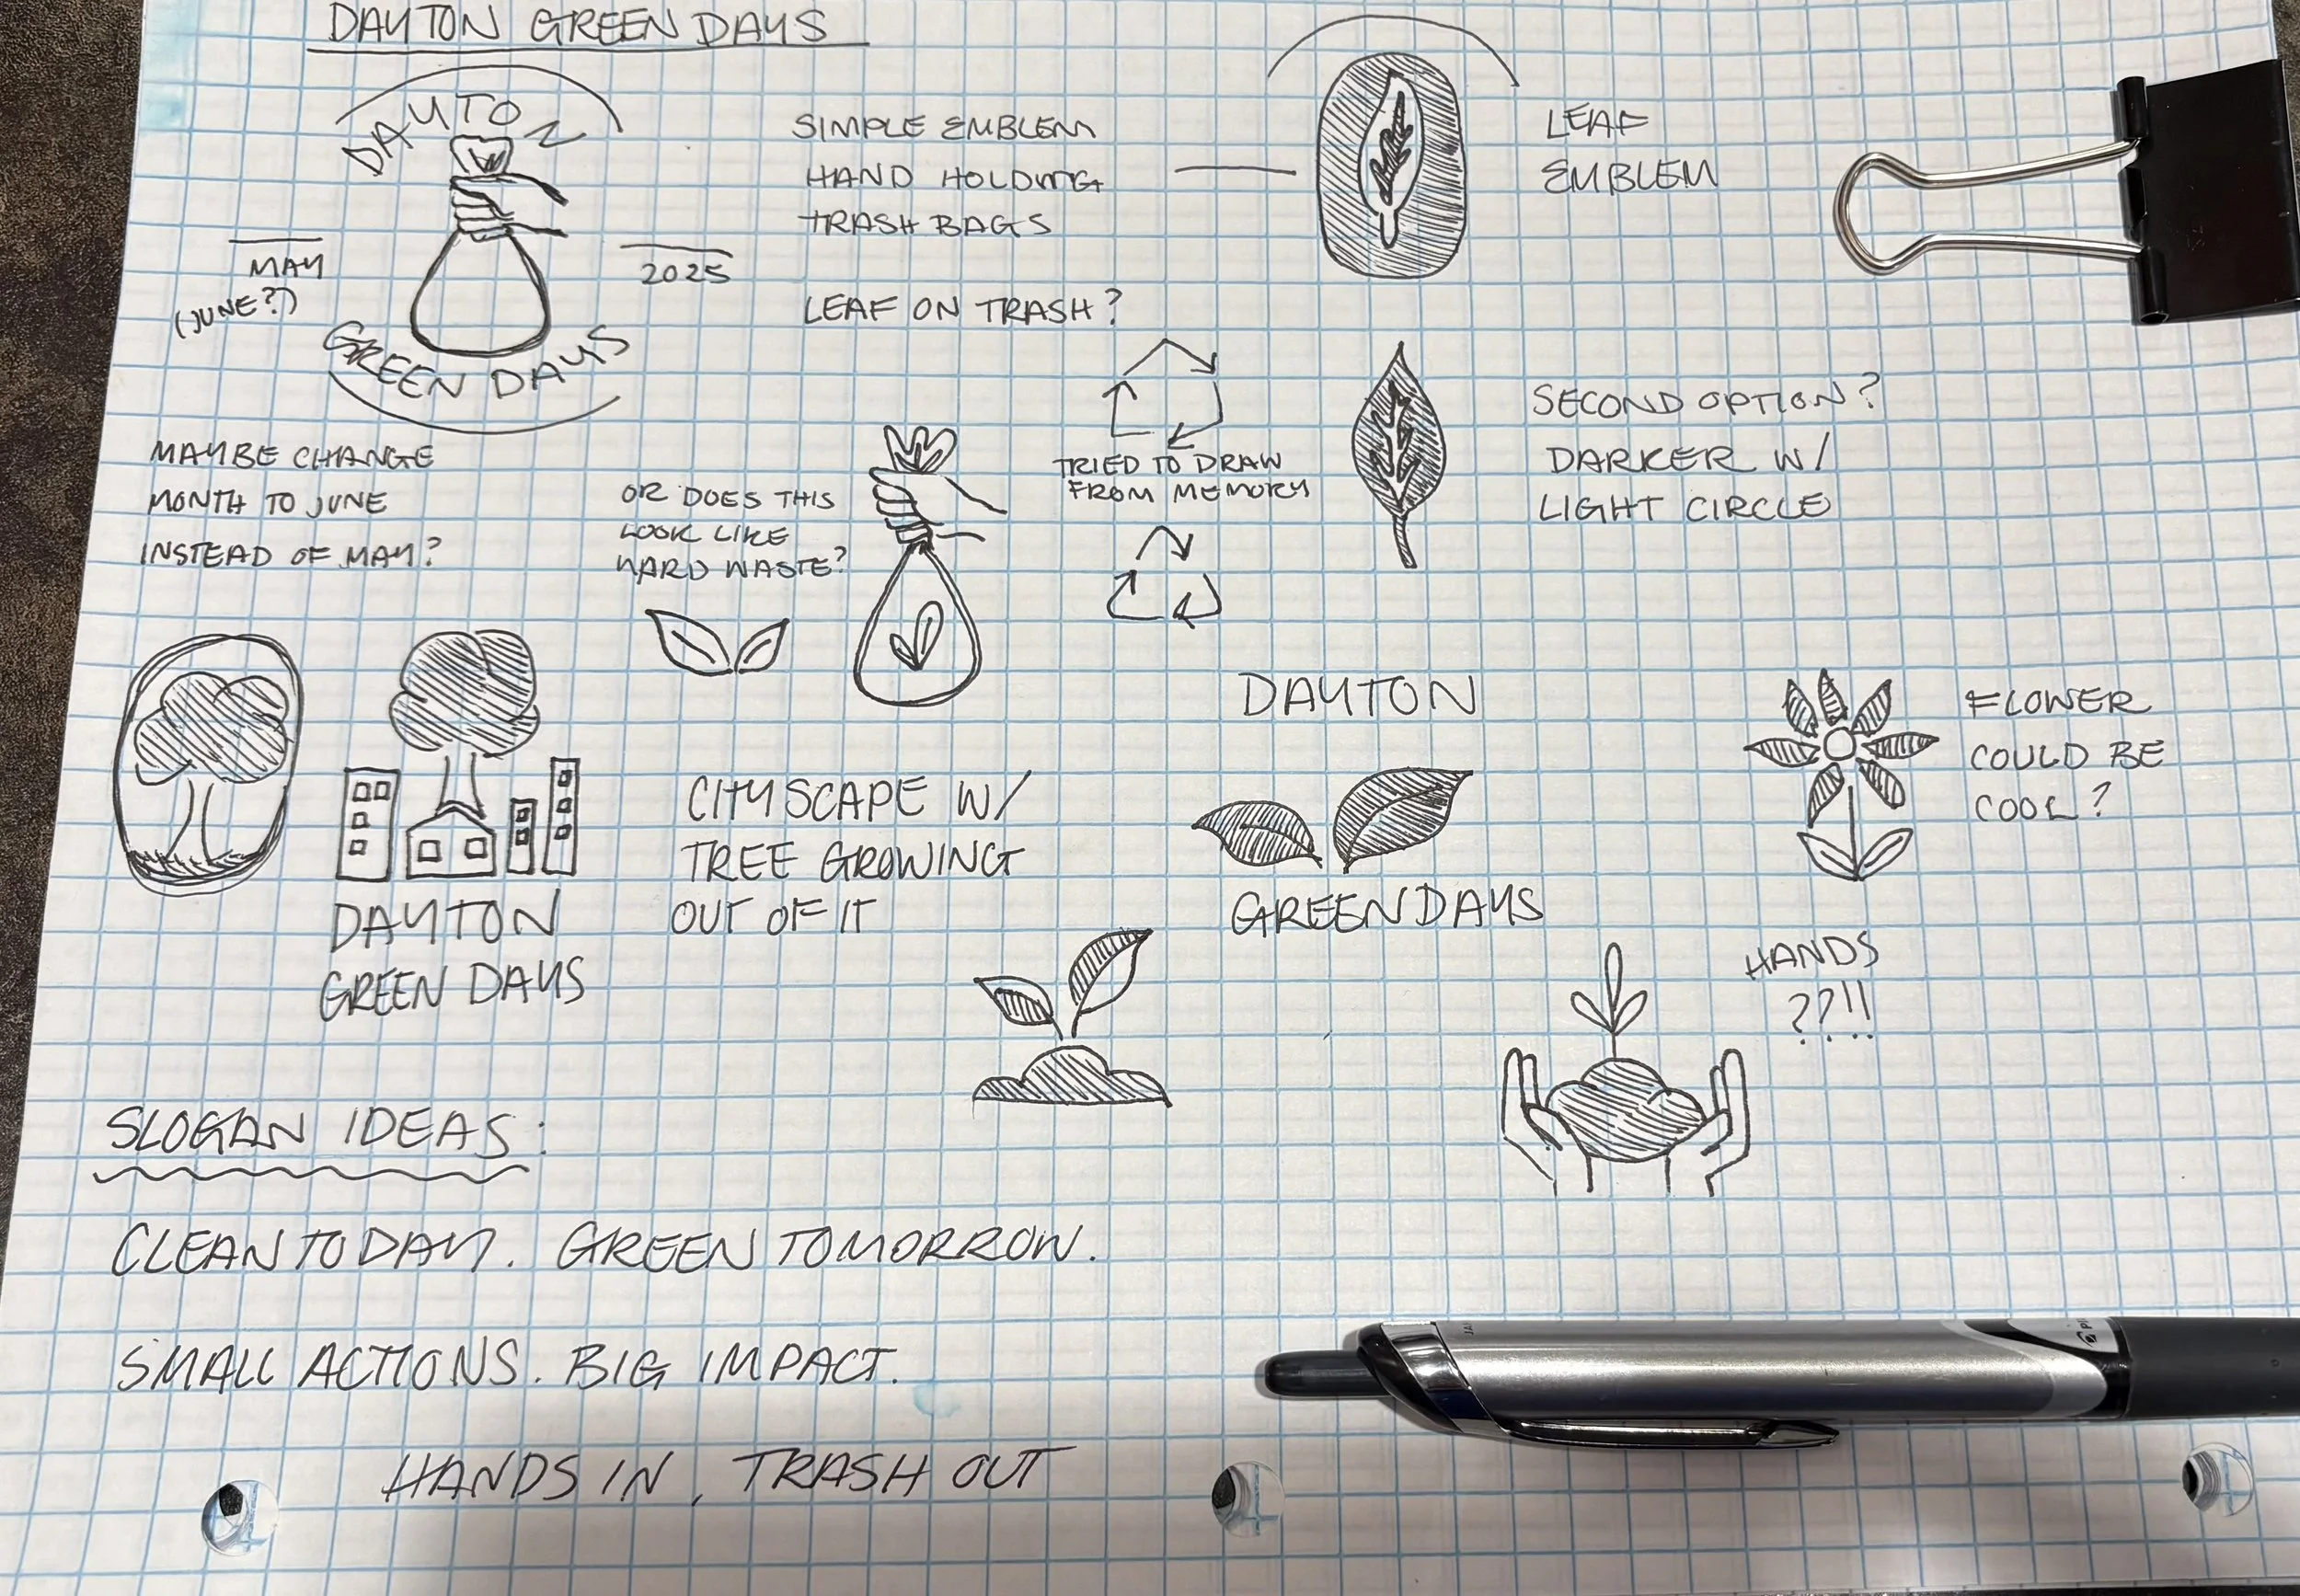 DAYTON GREEN DAYS
DAYTON
MAY
(JUNE?)
2025
GREEN DAYS
SIMPLE EMBLEM
HAND HOLDING
TRASH BAGS
LEAF ON TRASH?
LEAF
EMBLEM
MAYBE CHANGE
MONTH TO JUNE
INSTEAD OF MAY?
OR DOES THIS
LOOK LIKE
YARD WASTE?
TRIED TO DRAW
FROM MEMORY
SECOND OPTION?
DARKER W/
LIGHT CIRCLE
DAYTON
GREEN DAYS
CITYSCAPE W/
TREE GROWING
OUT OF IT
DAYTON
GREEN DAYS
FLOWER
COULD BE
COOL?
HANDS
??!!
SLOGAN IDEAS:
CLEAN TODAY. GREEN TOMORROW.
SMALL ACTIONS. BIG IMPACT.
HANDS IN, TRASH OUT